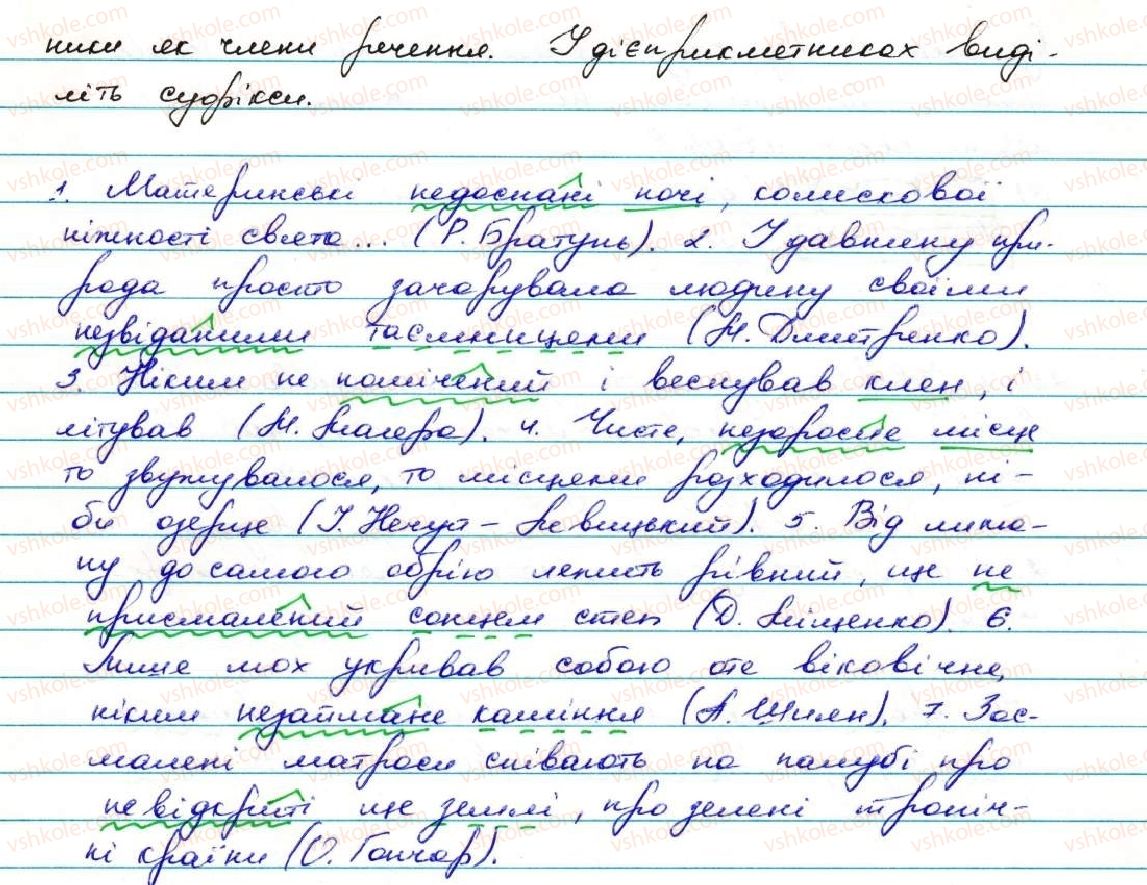 ники як члени речення. У дієприкметниках виді-
літь суфікси.
1. Материнські недоспані ночі, колискової
ніжності свято... (Р. Братунь). 2. У давнину при-
рода просто зачарувала людину своїми
незвіданими таємницями (М. Дмитренко).
3. Ніким не помічений і веснував клен, і
літував (М. Масера). 4. Чисте, незаросле місце
то звужувалося, то місцями розходилося, ні-
би озерце (І. Нечуй-Левицький). 5. Від лима-
ну до самого обрію лежить рівний, ще не
присмалений сонцем степ (Д. Міщенко). 6.
Лише мох укривав собою оте віковічне,
ніким незаймане каміння (А. Шиян). 7. Зас-
малені матроси співають на палубі про
невідкриті ще землі, про зелені тропіч-
ні країни (О. Гончар).